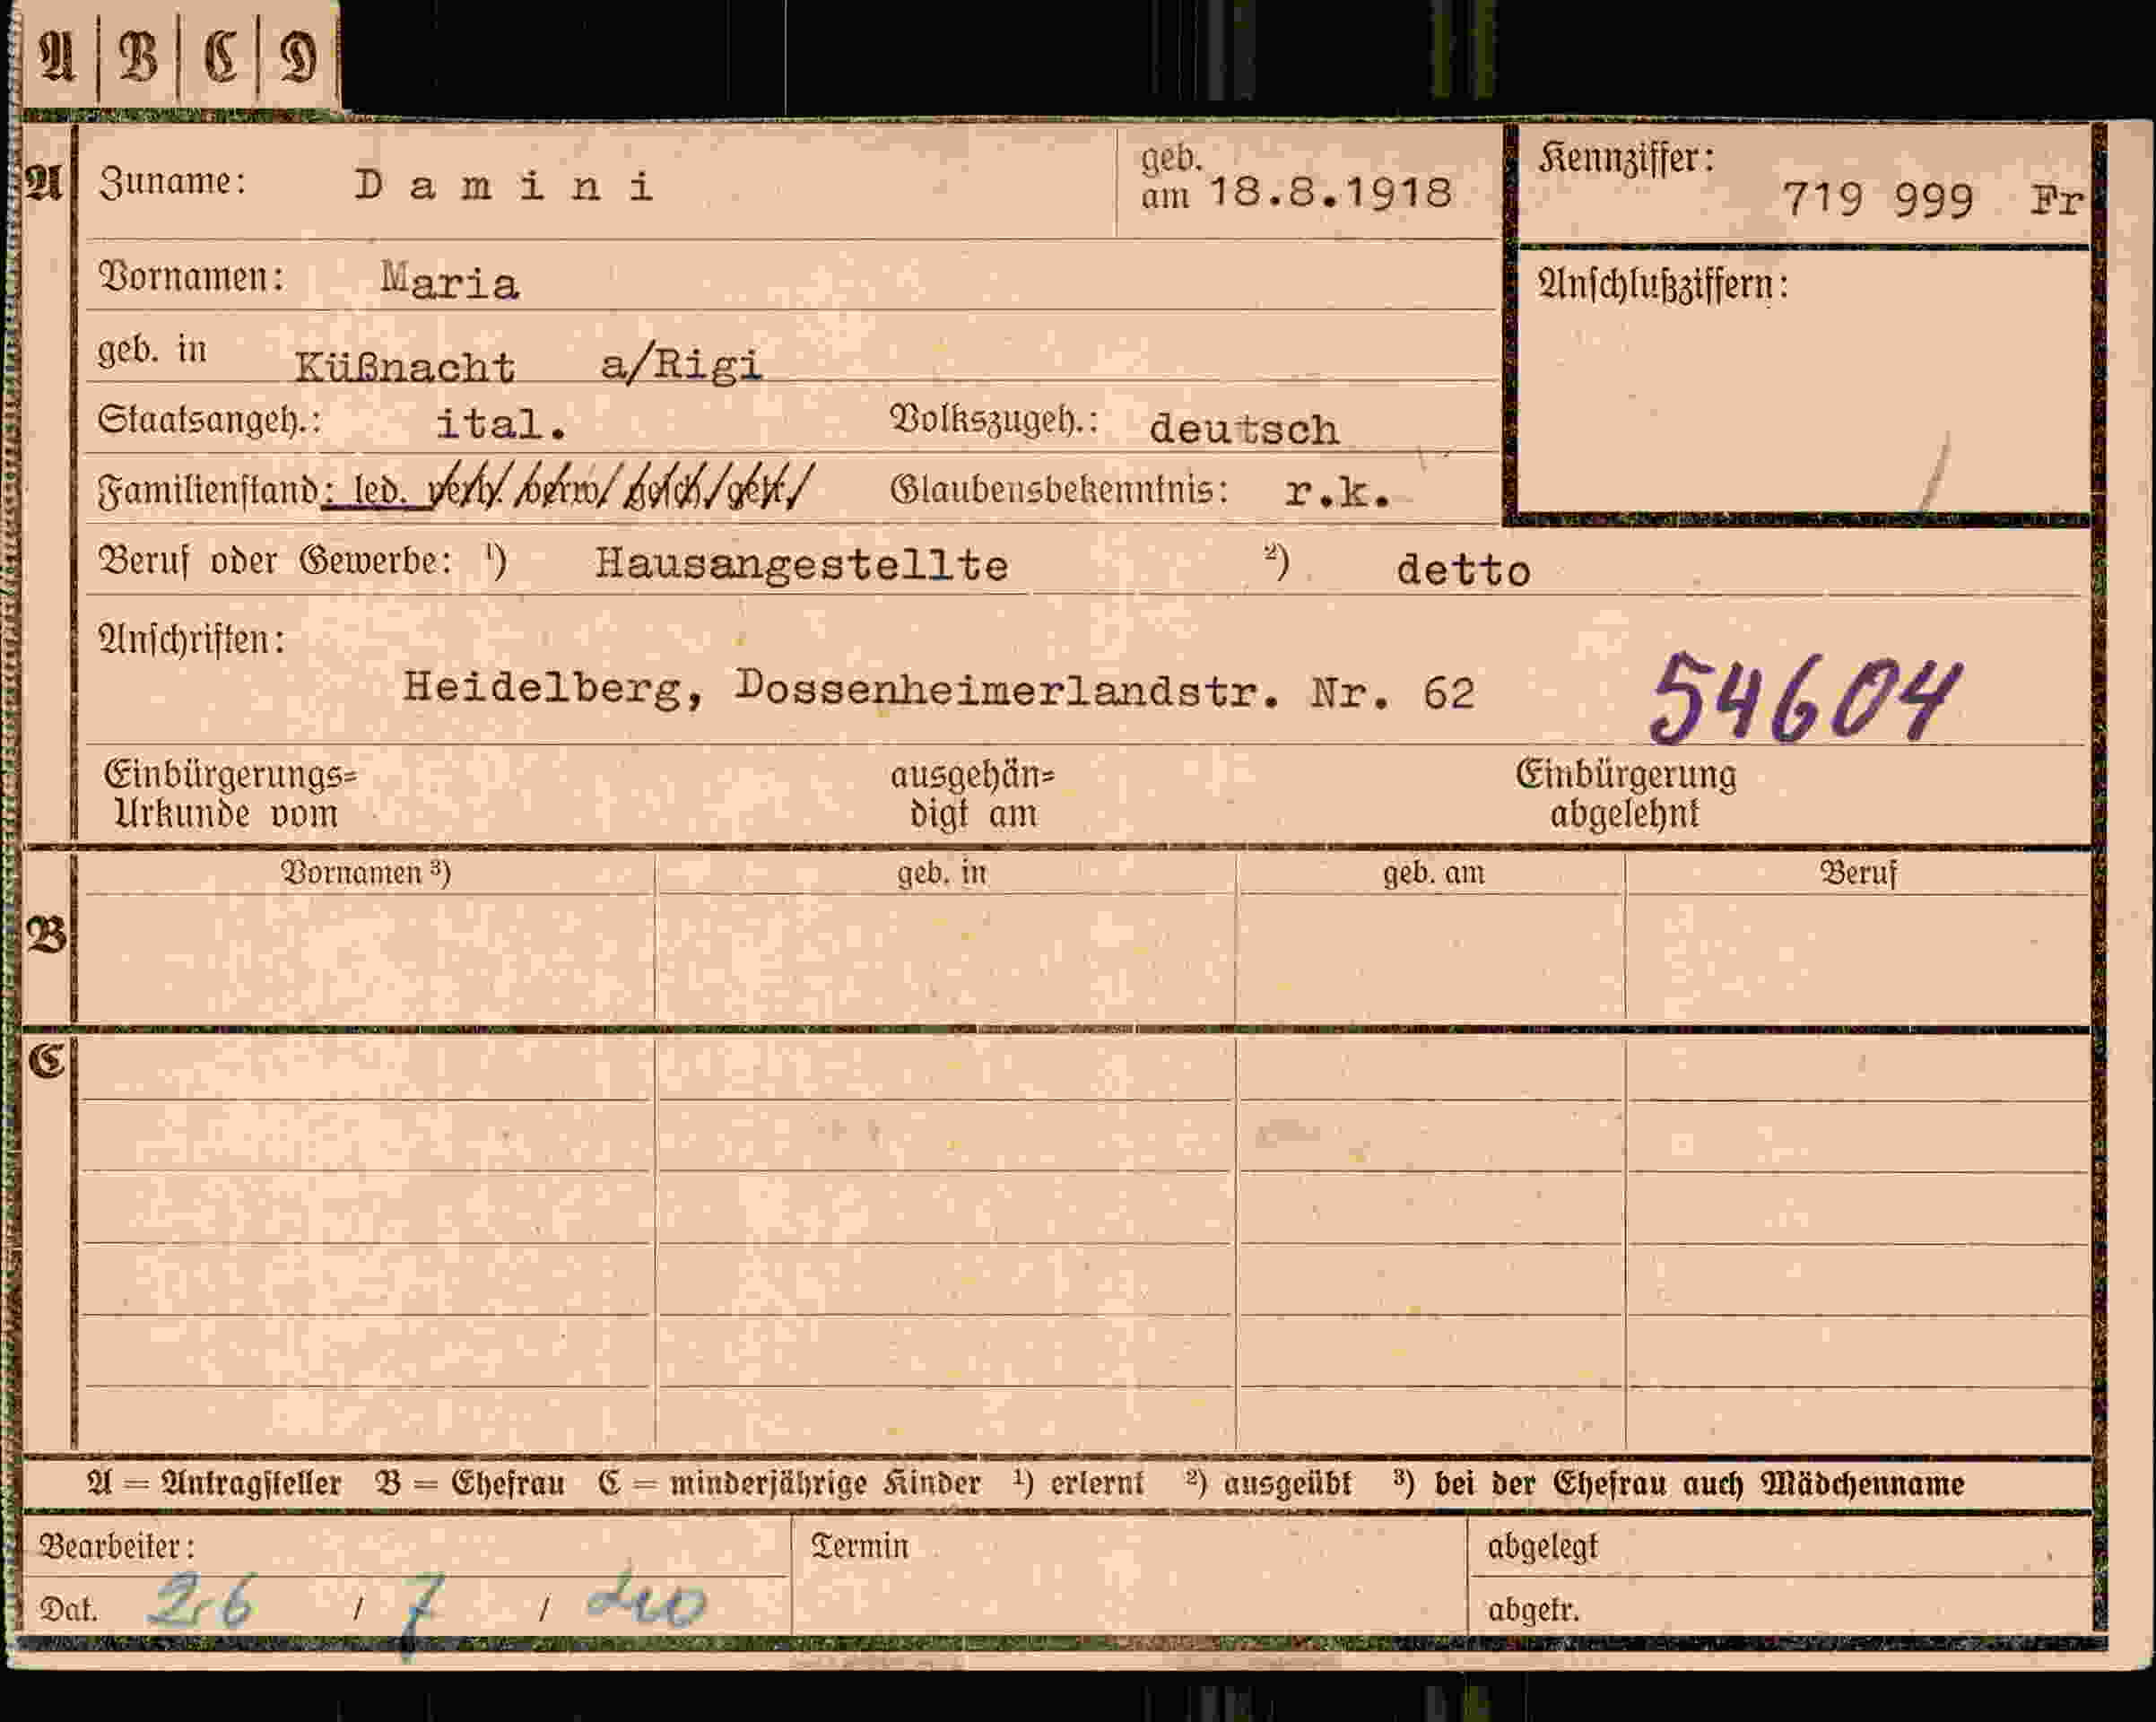 A | B | C | D
A Zuname: Damini geb. am 18.8.1918 Kennziffer: 719 999 Fr
Vornamen: Maria Anschlußziffern:
geb. in Küßnacht a/Rigi
Staatsangeh.: ital. Volkszugeh.: deutsch
Familienstand: led. verh. verw. gesch. getr. Glaubensbekenntnis: r.k.
Beruf oder Gewerbe: ¹) Hausangestellte ²) detto
Anschriften:
Heidelberg, Dossenheimerlandstr. Nr. 62 54604
Einbürgerungs= ausgehän= Einbürgerung
Urkunde vom digt am abgelehnt
Vornamen ³) geb. in geb. am Beruf
B
C
A = Antragsteller B = Ehefrau C = minderjährige Kinder ¹) erlernt ²) ausgeübt ³) bei der Ehefrau auch Mädchenname
Bearbeiter: Termin abgelegt
Dat. 26 / 7 / 40 abgetr.